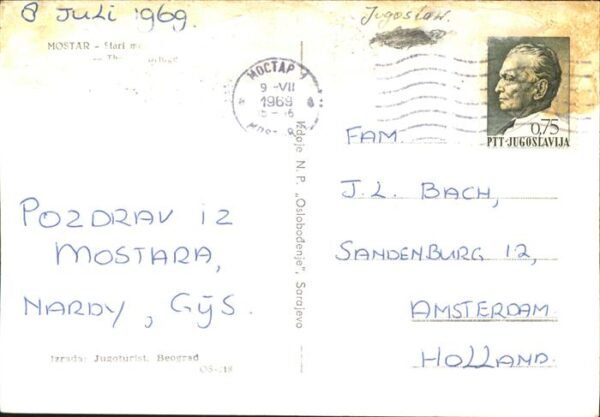 8 Juli 1969.
Jugoslaw.
MOSTAR – Stari
— The
МОСТАР 1
9-VII
1969
PTT-JUGOSLAVIJA
0,75
FAM.
J.L. BACH,
SANDENBURG 12,
AMSTERDAM
HOLLAND.
Izdaje N. P. „Oslobođenje", Sarajevo
POZDRAV IZ
MOSTARA,
NARDY, GÿS.
Izrada: Jugoturist, Beograd